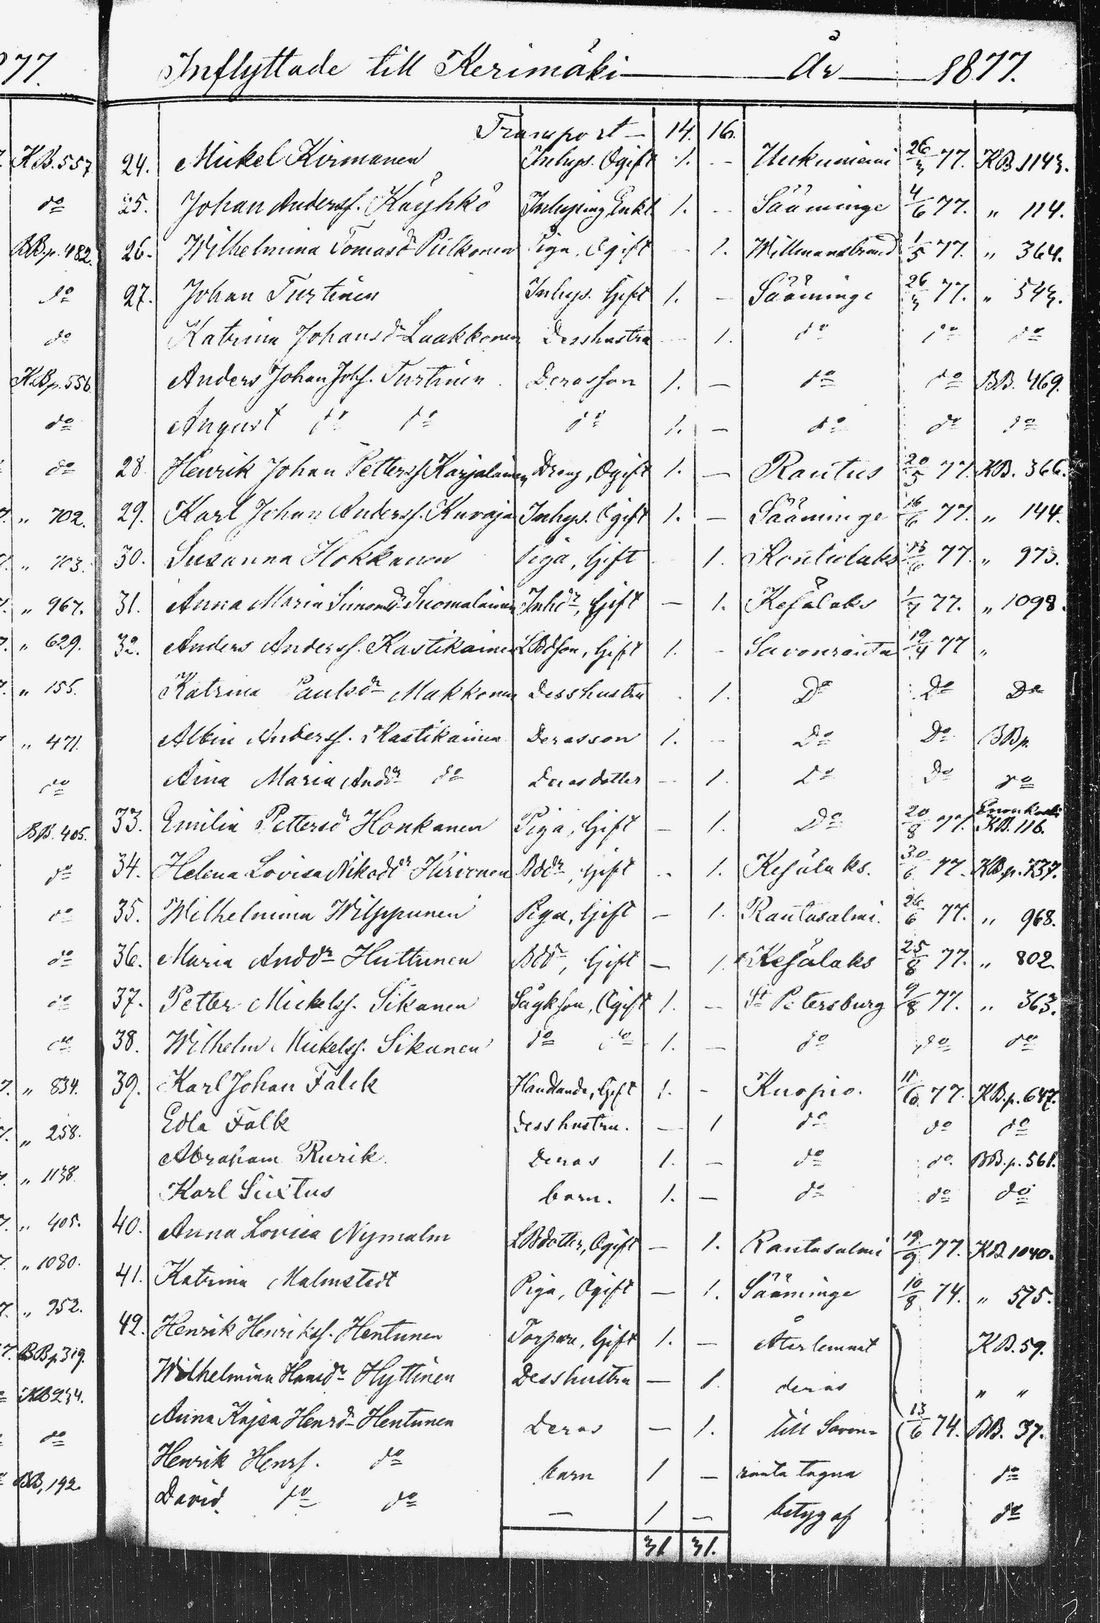 877.
K.B. 557
do
BB.p. 482.
do
do
K.B.p. 556
do
do
" 702.
" 703.
" 967.
" 629.
" 155.
" 471.
do
BB. 405.
do
do
do
do
do
" 834.
" 258.
" 1138.
" 405.
" 1080.
" 952.
BB.p 319.
KB 234.
do
BB, 192.
Inflyttade till Kerimäki År 1877.
Transport 14. 16.
24. Mickel Kirmanen Inhys. Ogift 1. — 26/3 77. KB. 1143.
25. Johan Anderss. Käyhkö Inhysing Enkl 1. — Sääminge 4/6 77. " 114.
26. Wilhelmina Tomasdr Pulkonen Piga, Ogift — 1. Willmanstrand 1/5 77. " 364.
27. Johan Turtinen Inhys. Gift 1. — Sääminge 26/3 77. " 543.
Katrina Johansdr Laakkonen Desshustru — 1. do do do
Anders Johan Johs. Turtinen Derasson 1. — do do BB. 469.
August do do do 1. — do do do
28. Henrik Johan Petterss. Karjalainen Dreng, Ogift 1. — Rautus 20/5 77. KB. 366.
29. Karl Johan Anderss. Kuraja Inhys. Ogift 1. — Sääminge 16/6 77. " 144.
30. Susanna Hokkanen Piga, Gift — 1. Kontiolaks 77. " 973.
31. Anna Maria Simonsdr Suomalainen Inhdr, Gift — 1. Kesälaks 1/7 77. " 1098.
32. Anders Anderss. Kastikainen LBdson, Gift 1. — Savonranta 19/4 77 "
Katrina Paulsdr Makkonen Desshustru — 1. Do Do Do
Albin Anderss. Kastikainen Derasson 1. — Do Do BBp.
Aina Maria Anddr do Derasdotter — 1. Do Do do
33. Emilia Pettersdr Honkanen Piga, Gift — 1. Do 20/8 77. Enonkoski KB. 116.
34. Helena Lovisa Nikodr Hirvonen Bddr, Gift — 1. Kesälaks. 30/6 77. KB.p. 737.
35. Wilhelmina Wilppunen Piga, Gift — 1. Rantasalmi. 26/6 77. " 968.
36. Maria Anddr Huttunen Bdr, Gift — 1. Kesälaks 25/8 77. " 802
37. Petter Mickelss. Sikanen Sågkson, Ogift 1. — St Petersburg 9/8 77. " 363.
38. Wilhelm Mickelss. Sikanen do do 1. — do do do
39. Karl Johan Falck Handlande, Gift 1. — Kuopio. 77. KB.p. 647.
Edla Falk Desshustru. — 1 do do do
Abraham Rurik. Deras 1. — do do BB.p. 561.
Karl Sixtus barn. 1. — do do do
40. Anna Lovisa Nymalm LBdotter, Ogift — 1. Rantasalmi 19/9 77. KB. 1040.
41. Katrina Malmstedt Piga, Ogift — 1. Sääminge 10/8 74. " 575.
42. Henrik Henrikss. Hentunen Torpare, Gift 1. — Återlemnat KB. 59.
Wilhelmina Hansdr Hyttinen Desshustru — 1. deras " "
Anna Kajsa Henrdr Hentunen Deras — 1. till Savon= 13/6 74. BB. 37.
Henrik Henrs. do barn 1 — ranta tagna do
David. do do — 1 — betyg af do
31 31.